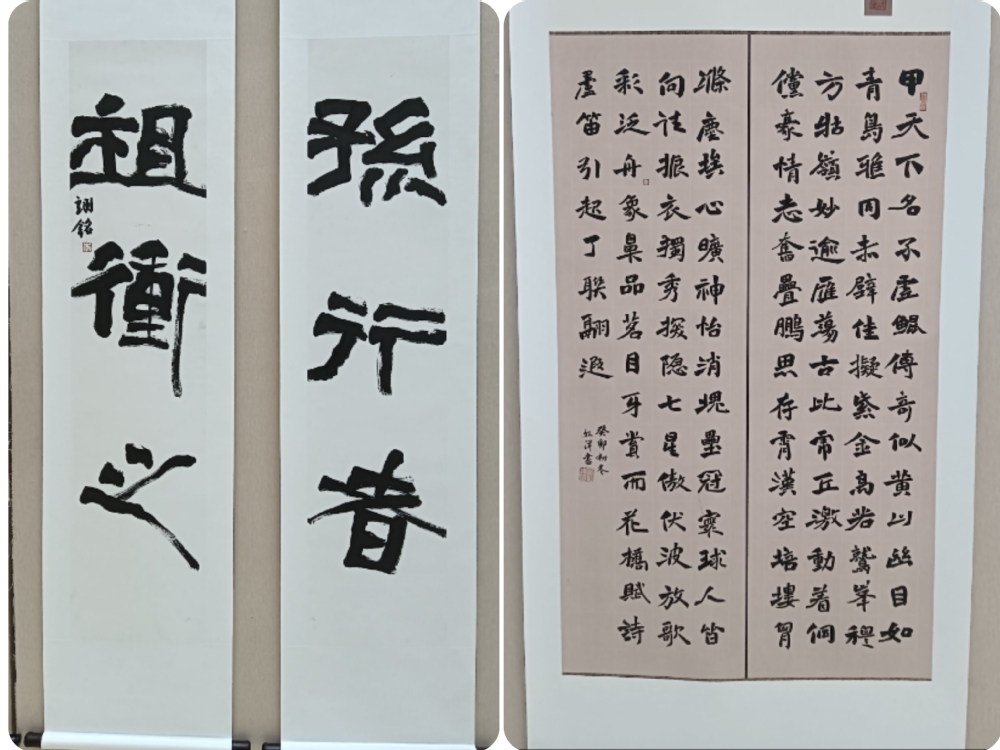 孫行者
祖衝之
翊銘
甲天下名不虛傳奇似黄山幽如
青島雅同赤壁佳擬紫金高若鷲峯穆
方牯嶺妙逾雁蕩古比虎丘激動着倜
儻豪情志奮疊鵬思存霄漢空培塿胃
滌塵埃心曠神怡消塊壘冠寰球人皆
向往振衣獨秀探隐七星傲伏波放歌
彩泛舟象鼻品茗月牙賞而花橋賦詩
蘆笛引起了聯翩遐
癸卯初冬